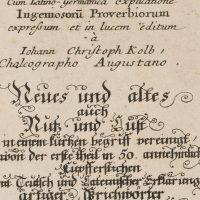 Cum Latino-Germanica explicatione
Ingeniosorū Proverbiorum
expreſsum et in lucem editum
à
Iohann Christoph Kolb,
Chalcographo Augustano.
Neues und altes
auch
Nutz und Lust
in einem kürtzen begriff vereinigt,
von der erste theil in 50. annehmlich
Kupfferstichen
mit Teutsch und Lateinischer Erklärung
artiger Sprichwörter